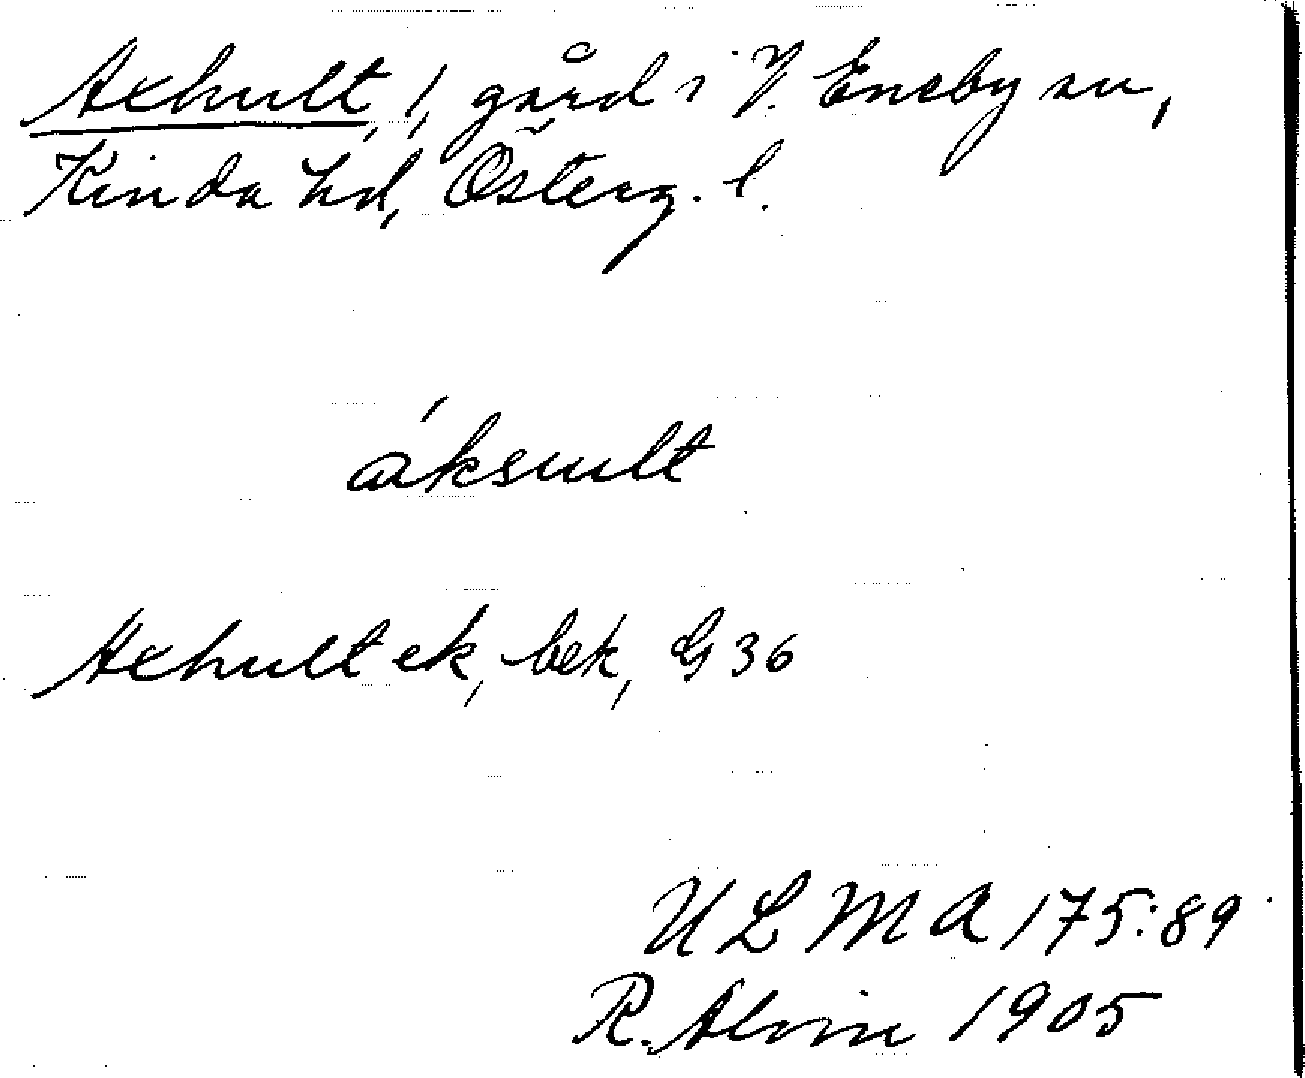 Axhult, 1, gård i V. Eneby sn,
Kinda hd, Österg. l.
áksult
Axhult ek, bek, G 36
ULMA 175:89
R. Alvin 1905